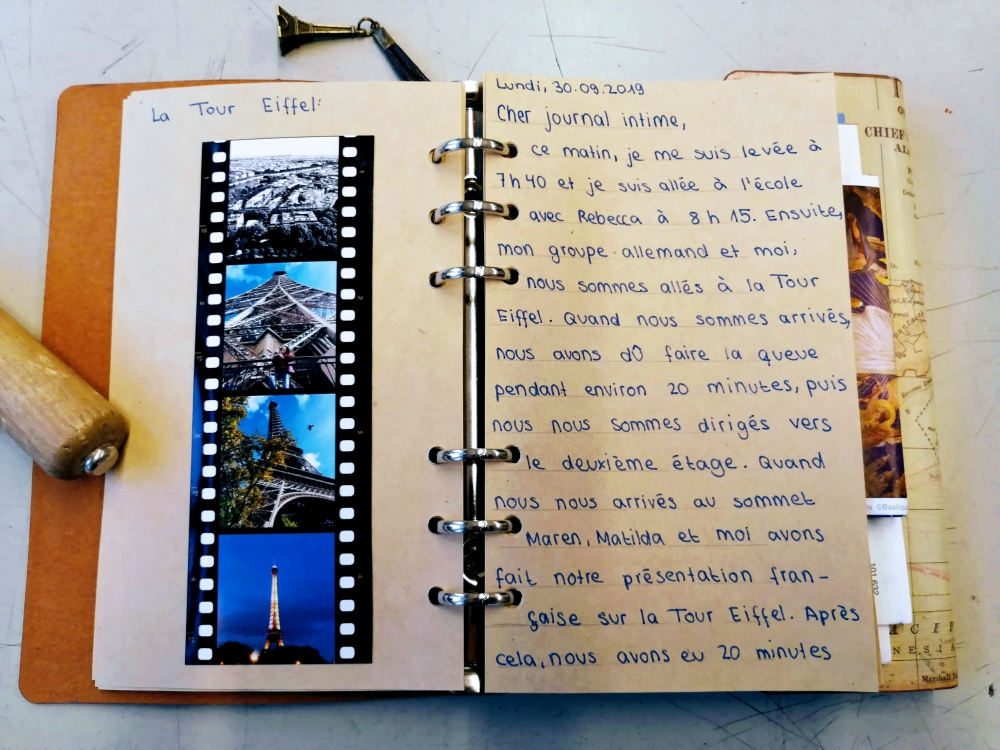 La Tour Eiffel:
Lundi, 30.09.2019
Cher journal intime,
ce matin, je me suis levée à
7h40 et je suis allée à l'école
avec Rebecca à 8 h 15. Ensuite,
mon groupe allemand et moi,
nous sommes allés à la Tour
Eiffel. Quand nous sommes arrivés,
nous avons dû faire la queue
pendant environ 20 minutes, puis
nous nous sommes dirigés vers
le deuxième étage. Quand
nous nous arrivés au sommet
Maren, Matilda et moi avons
fait notre présentation fran-
çaise sur la Tour Eiffel. Après
cela, nous avons eu 20 minutes
CHIEF
AL
©Basilique
101 632
NESI
Marshall